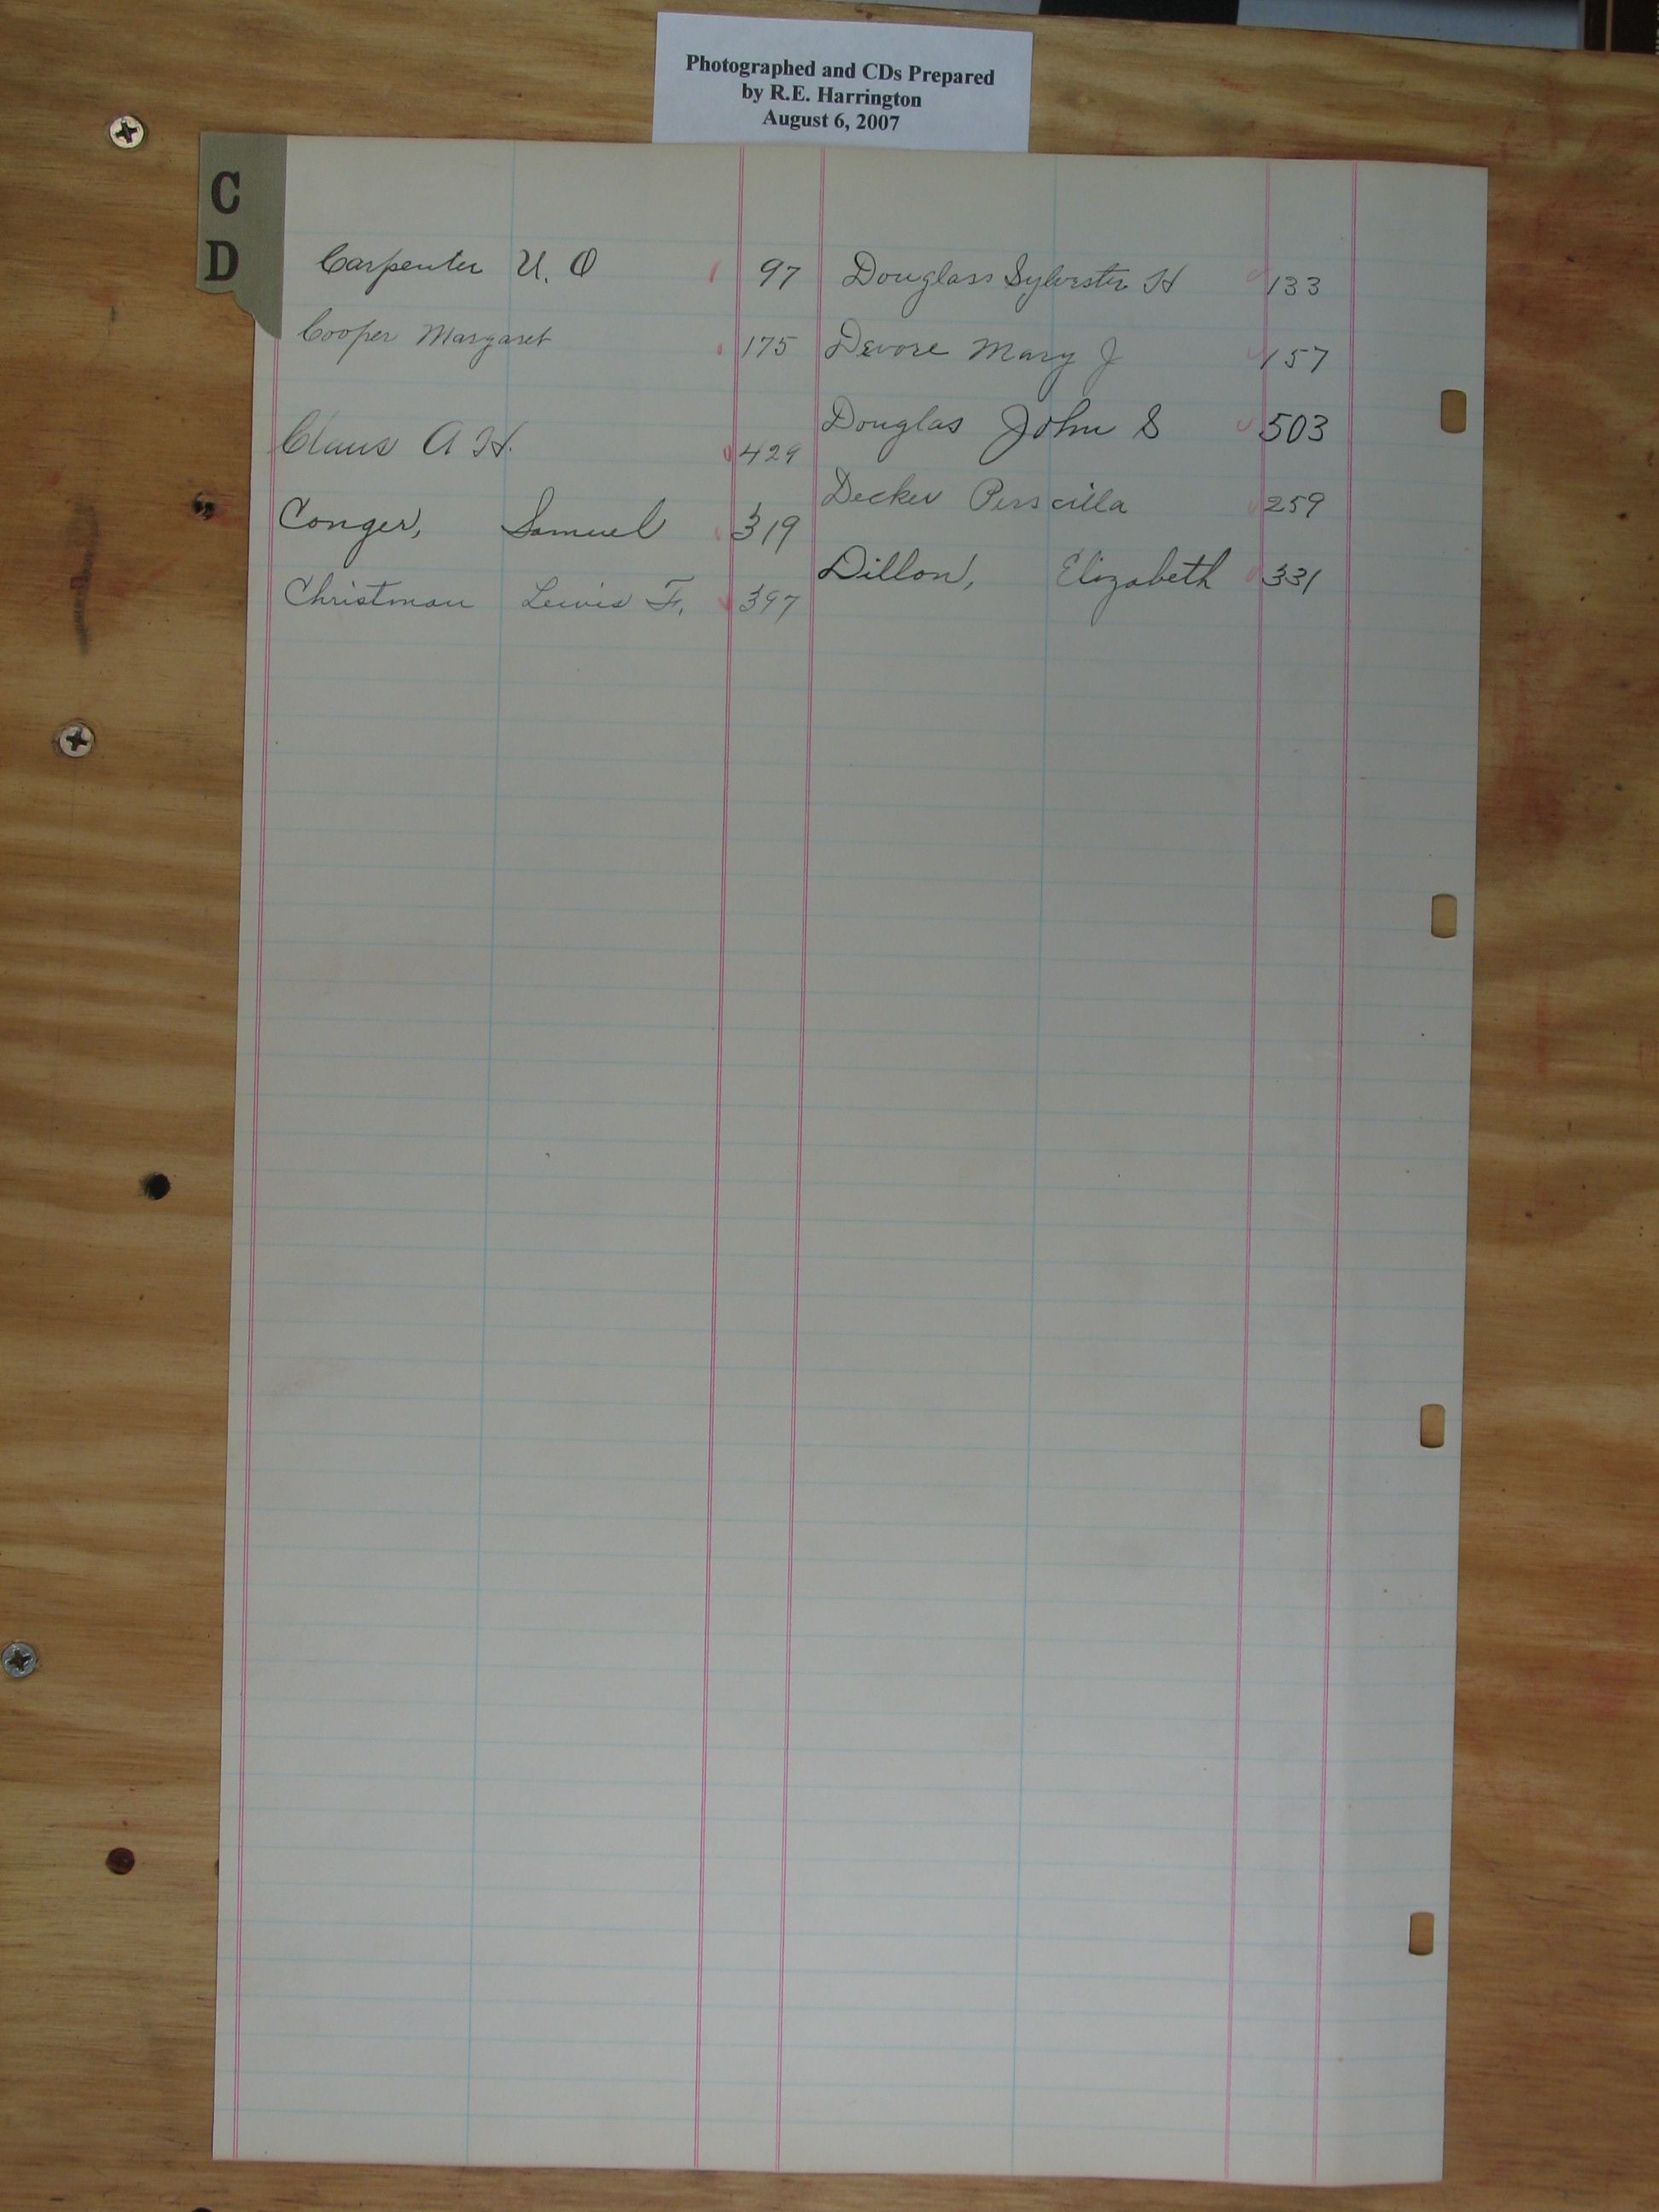 Photographed and CDs Prepared
by R.E. Harrington
August 6, 2007
C
D
Carpenter U. O 97
Cooper Margaret 175
Claus A H. 429
Conger, Samuel 319
Christman Lewis F. 397
Douglass Sylvester H 133
Devore Mary J 157
Douglas John S 503
Decker Perscilla 259
Dillon, Elizabeth 331